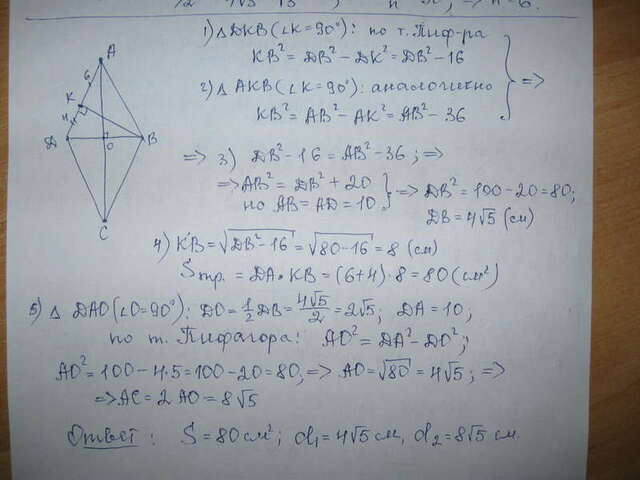 1) Δ DKB (∠K=90°): по т. Пиф-ра
KB² = DB² − DK² = DB² − 16
2) Δ AKB (∠K=90°): аналогично
KB² = AB² − AK² = AB² − 36
} =>
A
6
K
4
D
O
B
C
=> 3) DB² − 16 = AB² − 36; =>
=> AB² = DB² + 20
но AB = AD = 10 } => DB² = 100 − 20 = 80;
DB = 4√5 (см)
4) KB = √DB² − 16 = √80 − 16 = 8 (см)
Sпр. = DA • KB = (6+4) · 8 = 80 (см²)
5) Δ DAO (∠O=90°): DO = 1/2 DB = 4√5/2 = 2√5; DA = 10;
по т. Пифагора: AO² = DA² − DO²;
AO² = 100 − 4·5 = 100 − 20 = 80, => AO = √80 = 4√5; =>
=> AC = 2 AO = 8√5
Ответ: S = 80 см²; d₁ = 4√5 см, d₂ = 8√5 см.